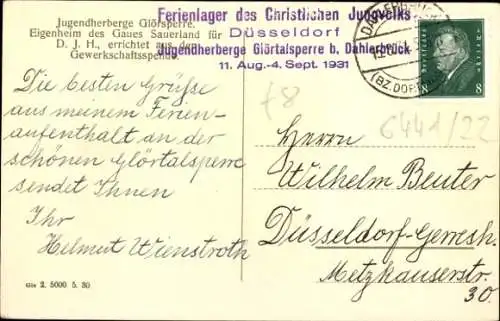 Jugendherberge Glörsperre.
Eigenheim des Gaues Sauerland für
D. J. H., errichtet aus der
Gewerkschaftsspende.
Ferienlager des Christlichen Jungvolks
Düsseldorf
Jugendherberge Glörtalsperre b. Dahlerbrück
11. Aug.-4. Sept. 1931
(BZ. DOR
Deutsches Reich
8 8
f8
6441/22
Die besten Grüße
aus meinem Ferien-
aufenthalt an der
schönen Glörtalsperre
sendet Ihnen
Ihr
Helmut Wienstroth
Herrn
Wilhelm Beuter
Düsseldorf-Gerresh.
Metzkauserstr.
30.
2. 5000 5. 30